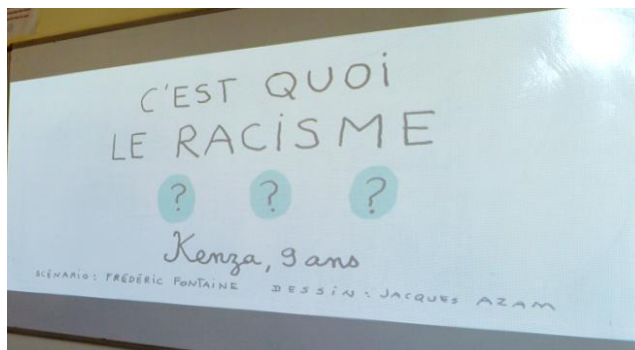 C'EST QUOI
LE RACISME
? ? ?
Kenza, 9 ans
SCÉNARIO : FRÉDÉRIC FONTAINE DESSIN : JACQUES AZAM